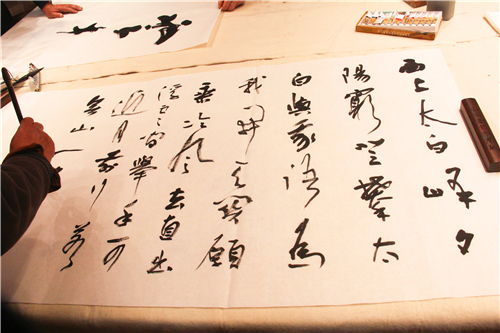 西上太白峰夕
陽窮登攀太
白與我語為
我開天關願
乘泠風去直出
浮雲間舉手可
近月前行若
無山一